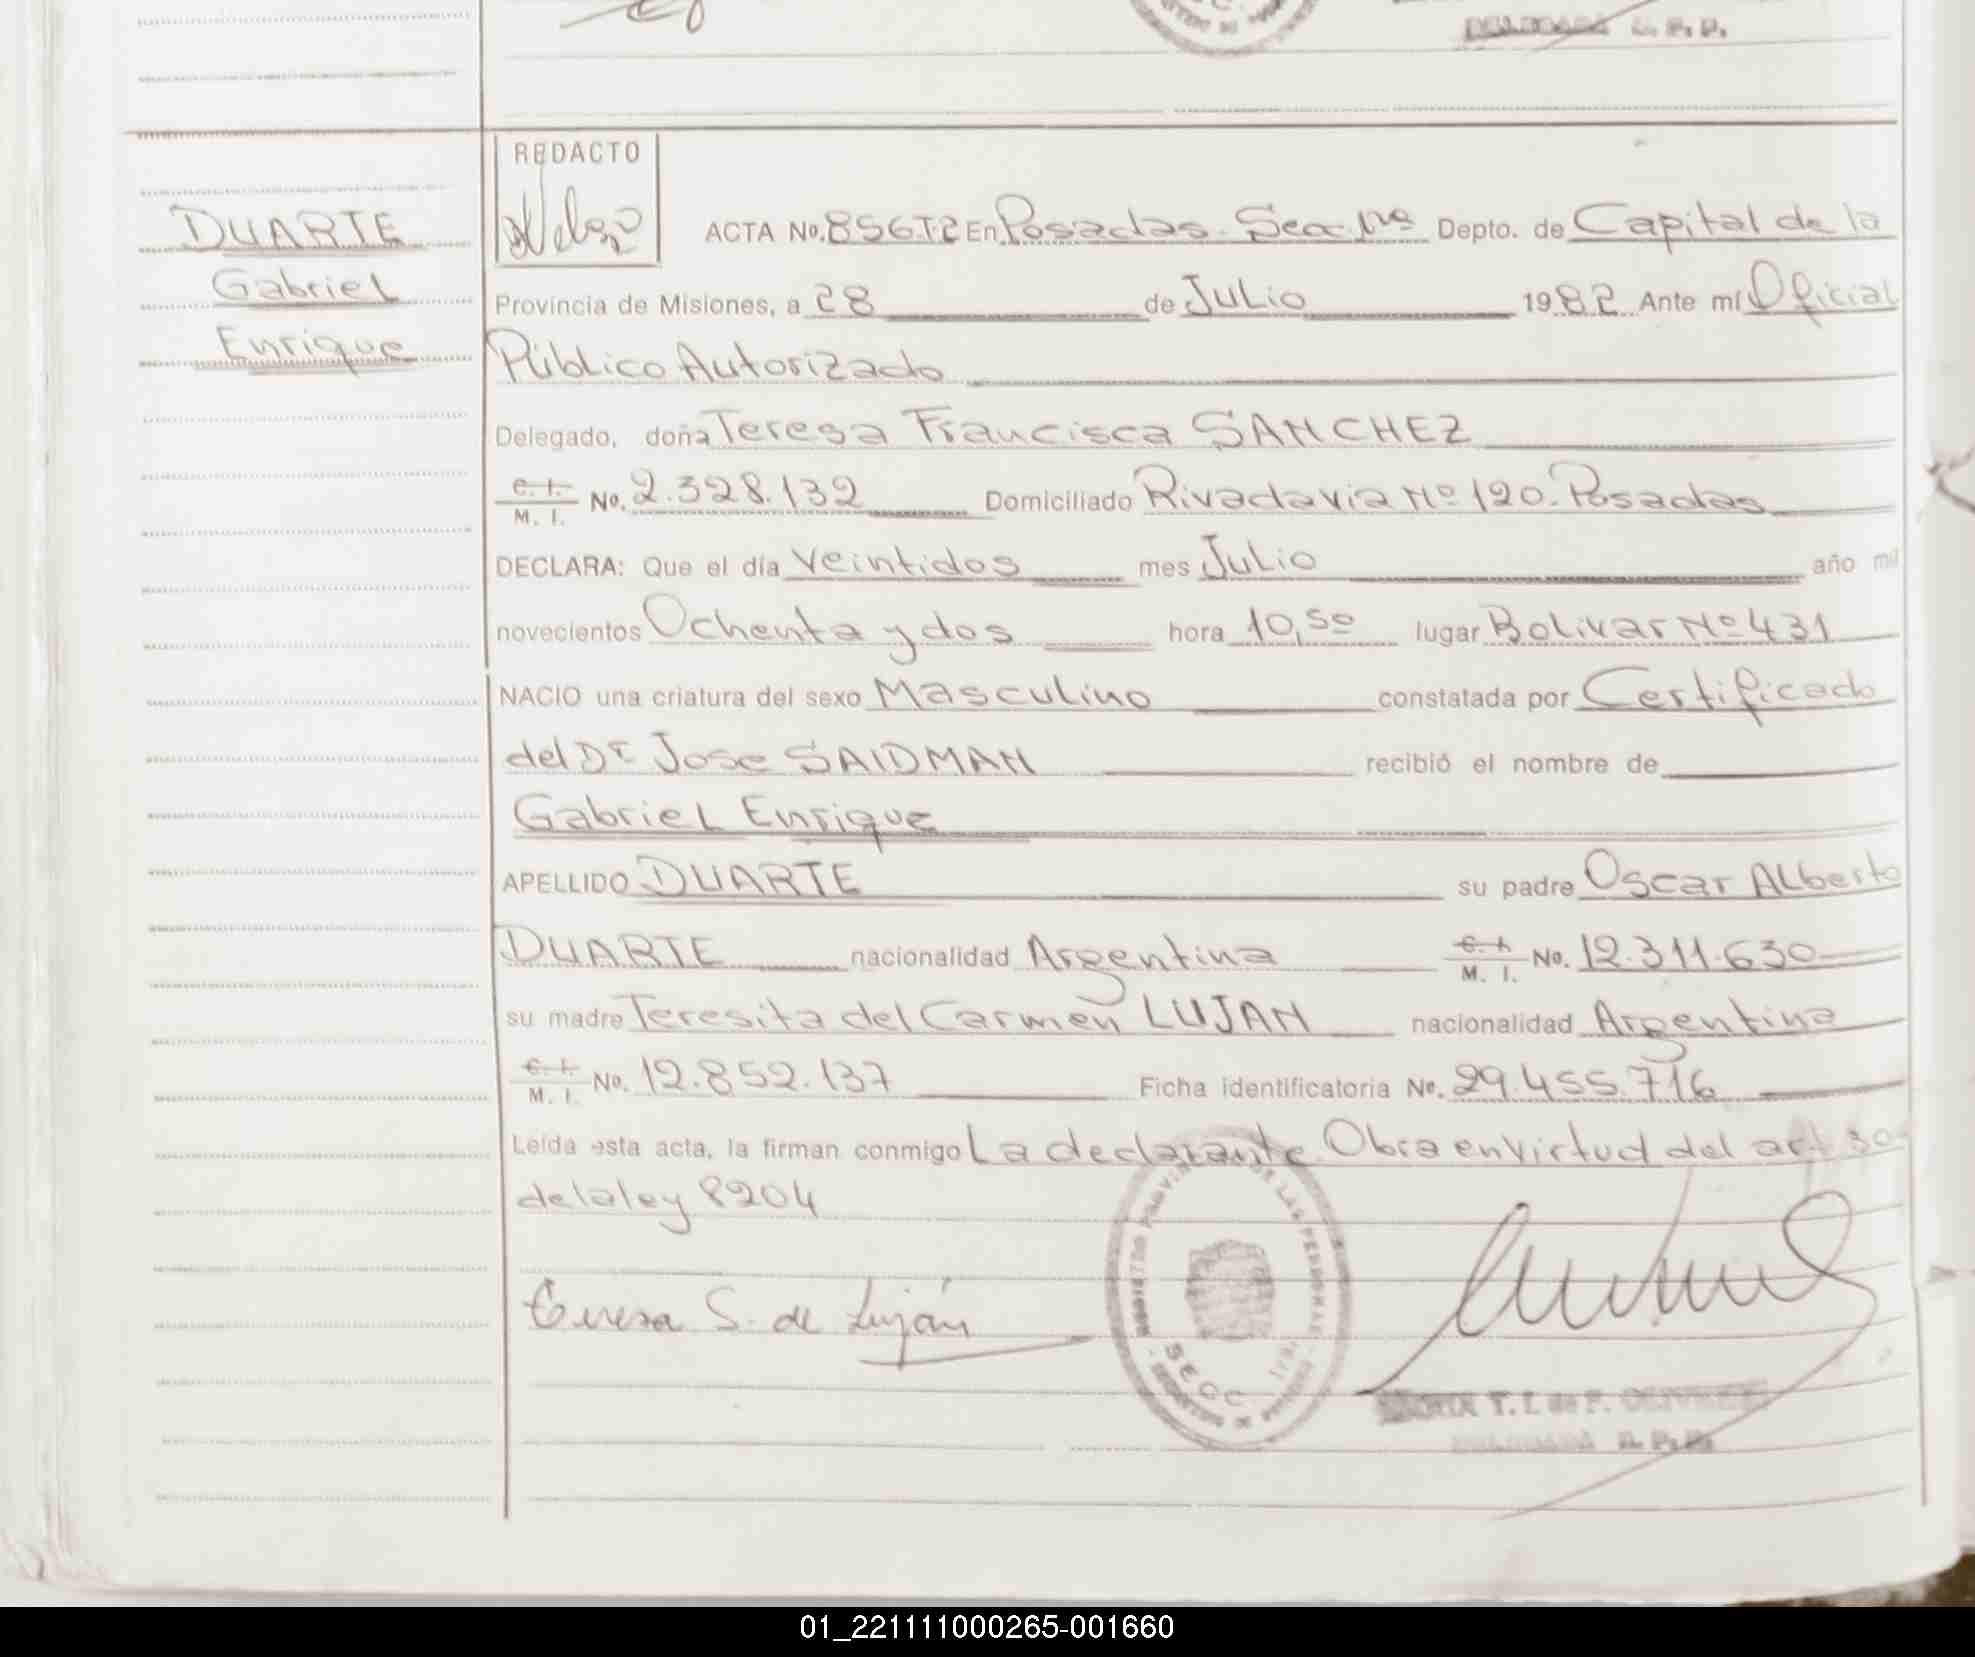 DELEGADA R. P. P.
REDACTO
DUARTE
Gabriel
Enrique
ACTA No. 856T2 En Posadas. Secc. 1ra Depto. de Capital de la
Provincia de Misiones, a 28 de Julio 1982 Ante mí Oficial
Público Autorizado
Delegado, doña Teresa Francisca SANCHEZ
C. I. M. I. No. 2.328.132 Domiciliado Rivadavia Nº 120. Posadas
DECLARA: Que el día Veintidos mes Julio año mil
novecientos Ochenta y dos hora 10,50 lugar Bolivar Nº 431
NACIO una criatura del sexo Masculino constatada por Certificado
del Dr Jose SAIDMAN recibió el nombre de
Gabriel Enrique
APELLIDO DUARTE su padre Oscar Alberto
DUARTE nacionalidad Argentina C. I. M. I. No. 12.311.630
su madre Teresita del Carmen LUJAN nacionalidad Argentina
C. I. M. I. No. 12.852.137 Ficha identificatoria No. 29.455.716
Leída esta acta, la firman conmigo La declarante. Obra en virtud del art 30
de la ley 8204
Teresa S. de Luján
REGISTRO PROVINCIAL DE LAS PERSONAS
T. I. de F. OLIVEIRA
DELEGADA R. P. P.
01_221111000265-001660